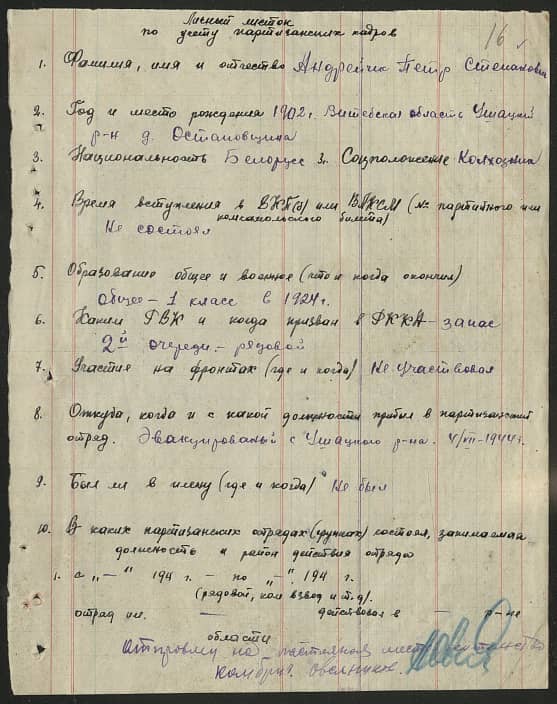 16
Личный листок
по учету партизанских кадров
1. Фамилия, имя и отчество Андрейчик Петр Степанович
2. Год и место рождения 1902 г. Витебская область Ушацкий
р-н д. Остановщина
3. Национальность Белорусс 3. Соцположение Колхозник
4. Время вступления в ВКП(б) или ВЛКСМ (№ партийного или
комсомольского билета)
Не состоял
5. Образование общее и военное (что и когда окончил)
Общее – 1 класс в 1924 г.
6. Каким РВК и когда призван в РККА – запас
2й очереди. – рядовой
7. Участие на фронтах (где и когда) Не участвовал
8. Откуда, когда и с какой должности прибыл в партизанский
отряд. Эвакуированый с Ушацкого р-на. 4/VII-1944 г.
9. Был ли в плену (где и когда) Не был
10. В каких партизанских отрядах (группах) состоял, занимаемая
должность и район действия отряда
1. с „—“ 194 г. – по „—“ 194 г.
(рядовой, ком взвод и т.д.)
отряд им. — действовал в — р-не
области
на место
Комбриг.